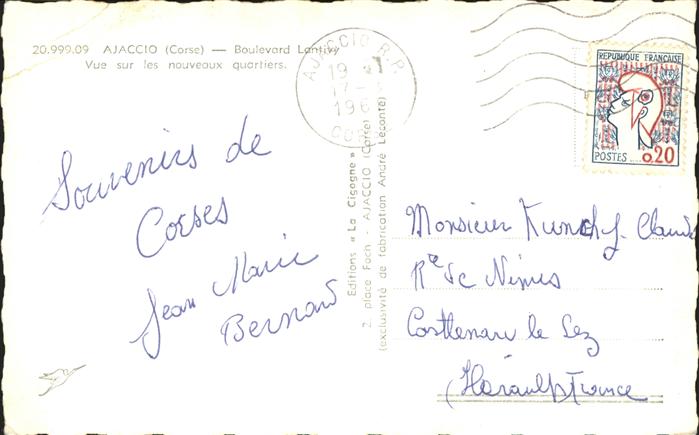 20.999.09 AJACCIO (Corse) — Boulevard Lantivy
Vue sur les nouveaux quartiers.
AJACCIO R.P.
19
17
196
REPUBLIQUE FRANÇAISE
POSTES 0,20
Souvenirs de
Corses
Jean Marie
Bernard
Editions « La Cigogne »
2, place Foch - AJACCIO (Corse)
(exclusivité de fabrication André Leconte)
Monsieur J. Claude
Rte de Nimes
Castlenau le Lez
(Herault) France